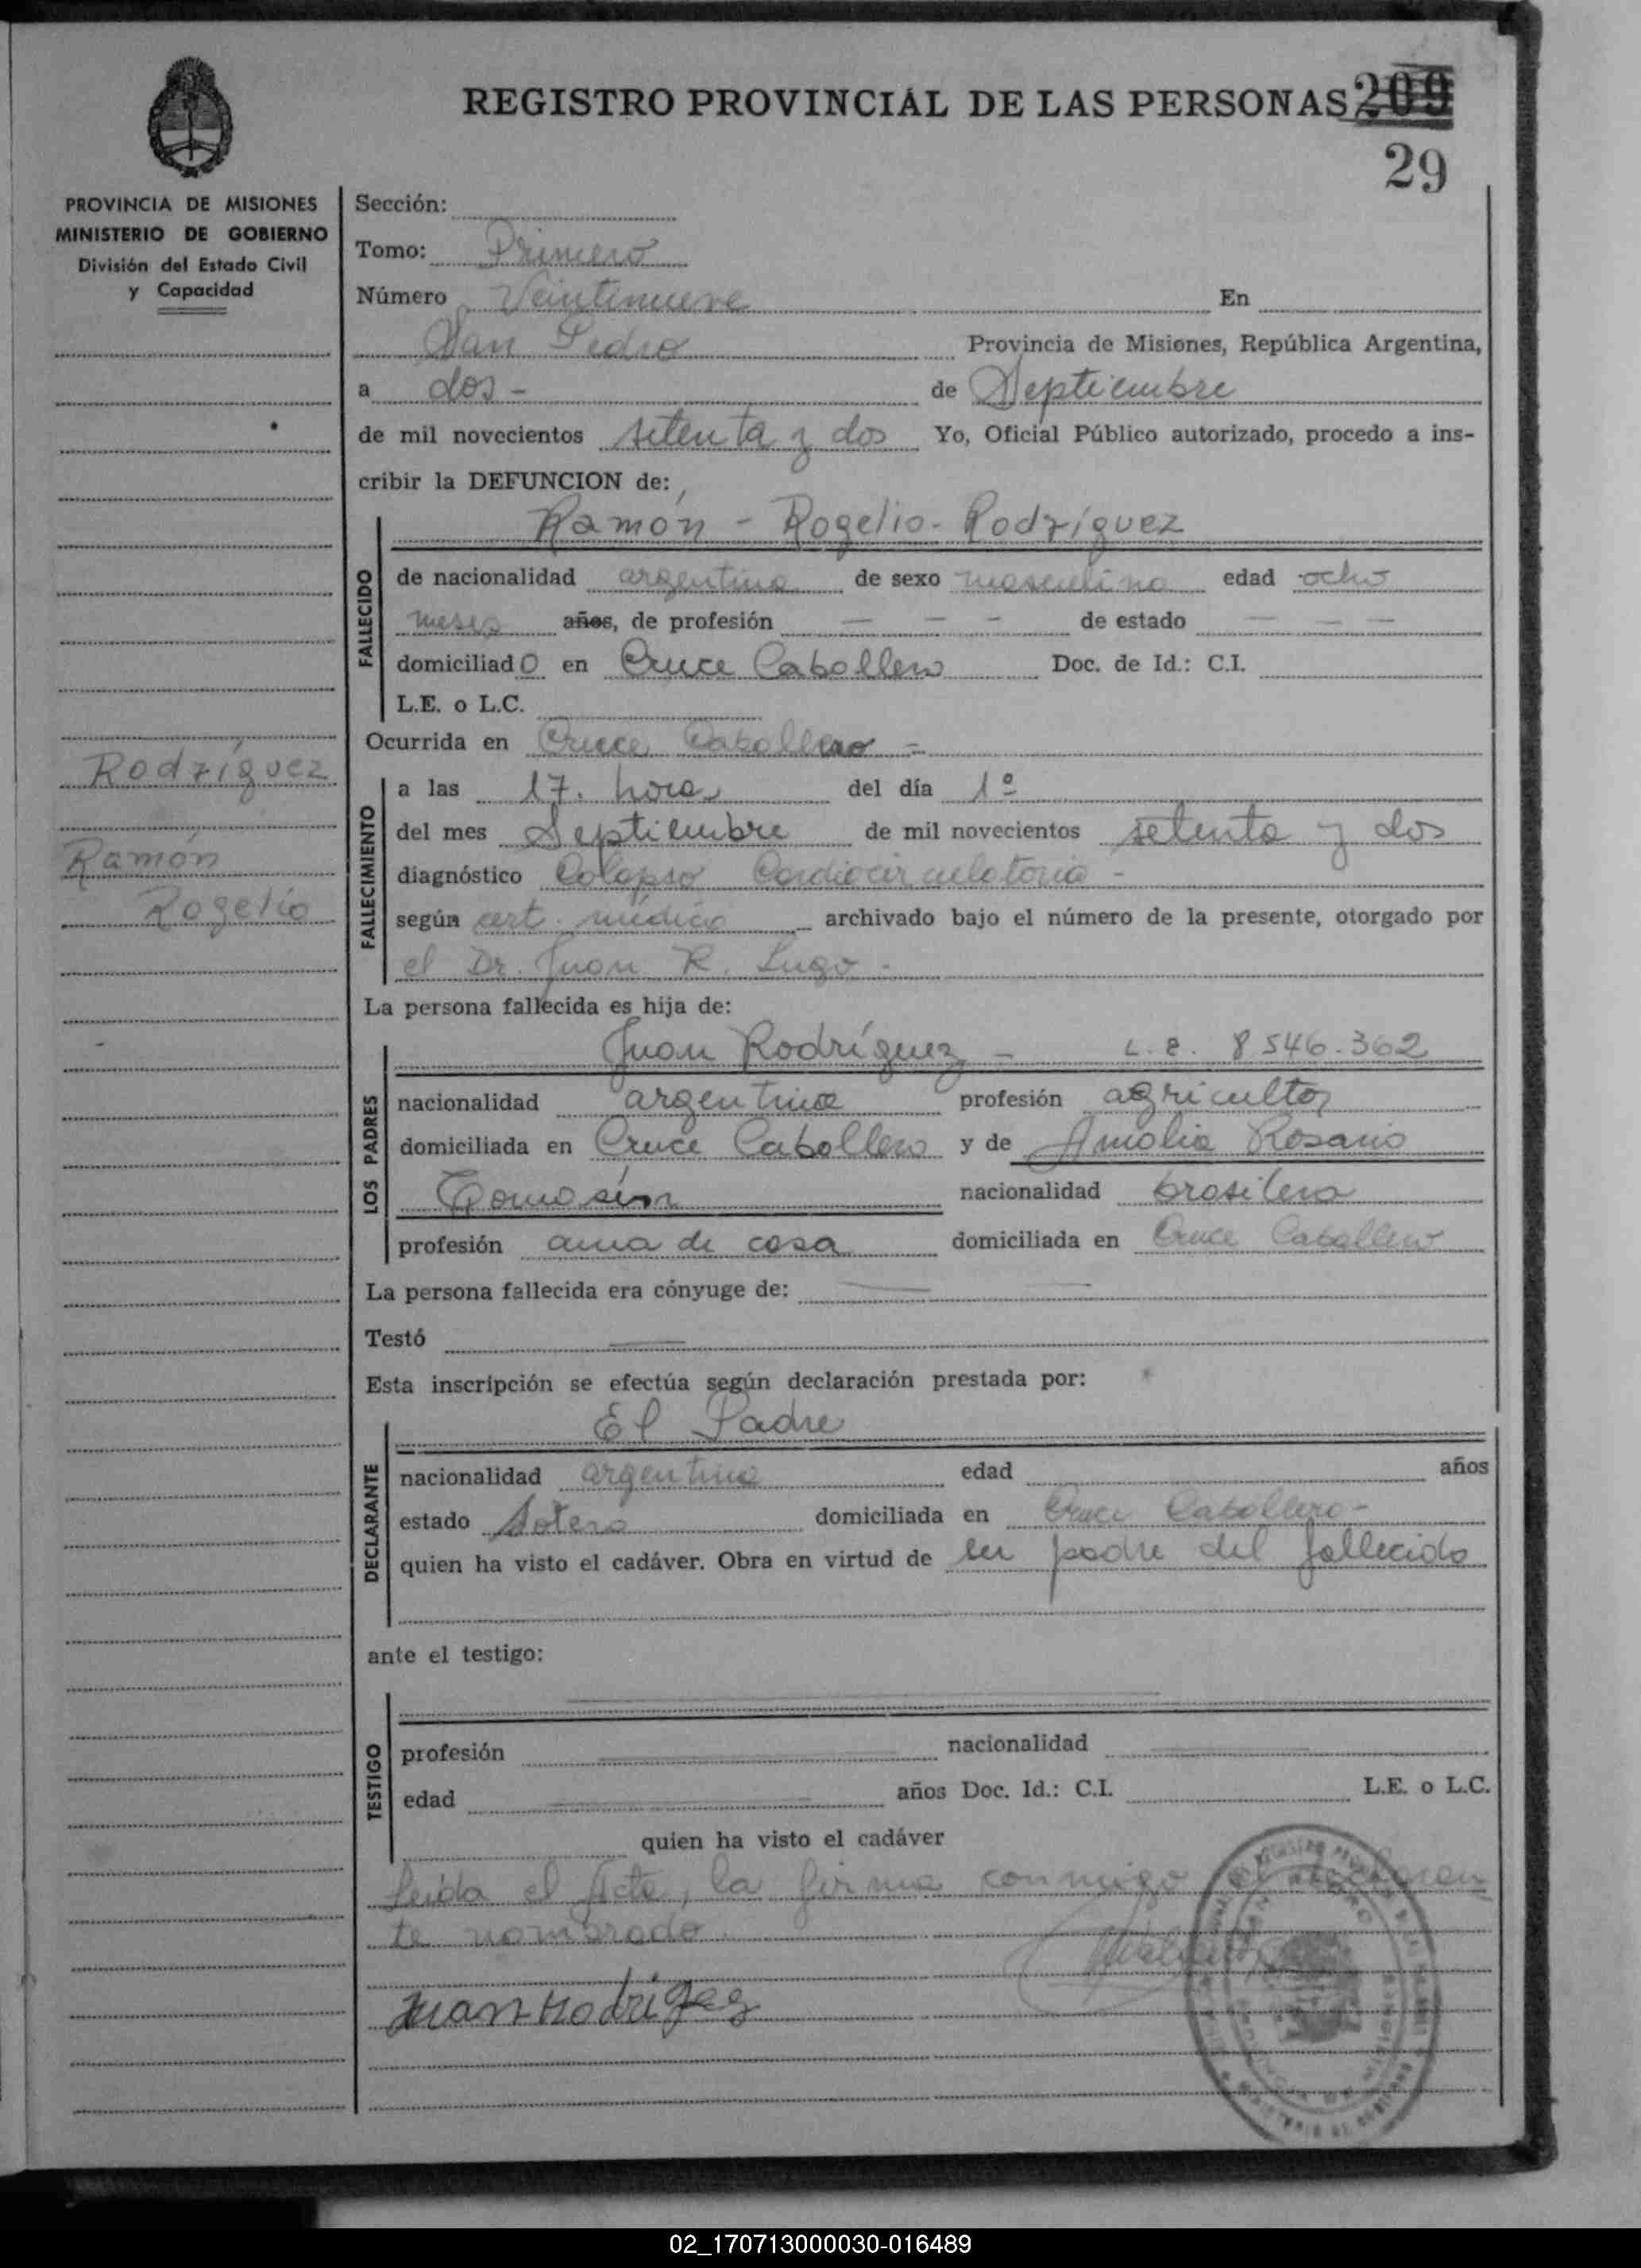 REGISTRO PROVINCIAL DE LAS PERSONAS 209
29
PROVINCIA DE MISIONES
MINISTERIO DE GOBIERNO
División del Estado Civil
y Capacidad
Rodríguez
Ramón
Rogelio
Sección:
Tomo: Primero
Número Veintinueve En
San Pedro Provincia de Misiones, República Argentina,
a dos - de Septiembre
de mil novecientos setenta y dos Yo, Oficial Público autorizado, procedo a ins-
cribir la DEFUNCION de:
Ramón - Rogelio - Rodríguez
FALLECIDO
de nacionalidad argentina de sexo masculino edad ocho
meses años, de profesión — — — de estado — — —
domiciliado en Cruce Caballero Doc. de Id.: C.I.
L.E. o L.C.
Ocurrida en Cruce Caballero -
FALLECIMIENTO
a las 17. hora del día 1º
del mes Septiembre de mil novecientos setenta y dos
diagnóstico Colapso Cardiocirculatorio -
según cert. médico archivado bajo el número de la presente, otorgado por
el Dr. Juan R. Lugo -
La persona fallecida es hija de:
LOS PADRES
Juan Rodríguez - L.E. 8546.362
nacionalidad argentina profesión agricultor
domiciliada en Cruce Caballero y de Amalia Rosario
nacionalidad brasilera
profesión ama de casa domiciliada en Cruce Caballero
La persona fallecida era cónyuge de:
Testó
Esta inscripción se efectúa según declaración prestada por:
DECLARANTE
El Padre
nacionalidad argentina edad años
estado Soltero domiciliada en Cruce Caballero -
quien ha visto el cadáver. Obra en virtud de ser padre del fallecido
ante el testigo:
TESTIGO
profesión nacionalidad
edad años Doc. Id.: C.I. L.E. o L.C.
quien ha visto el cadáver
Leida el Acta, la firma conmigo el declaran
te nombrado.
Juan Rodrigez
02_170713000030-016489